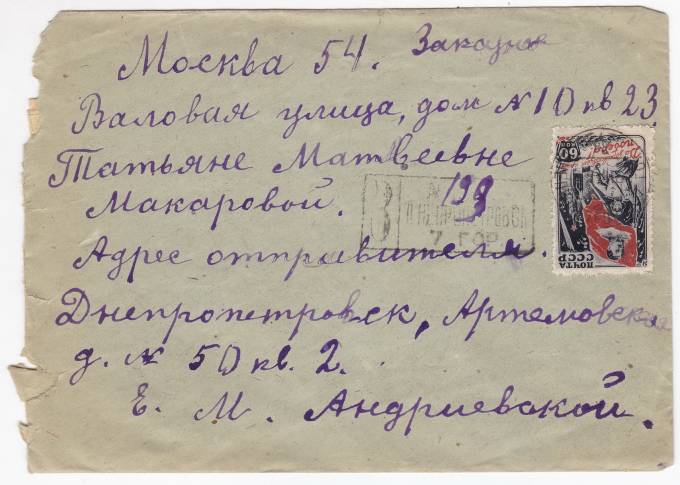 Москва 54. Заказное
Валовая улица, дом № 10 кв 23
Татьяне Матвеевне
Макаровой.
З № 199
ДНЕПРОПЕТРОВСК
7 ГОР.
Адрес отправителя.
Днепропетровск, Артемовская
д. № 50 кв. 2.
Е. М. Андриевской.
60 коп
победа!
ПОЧТА
СССР